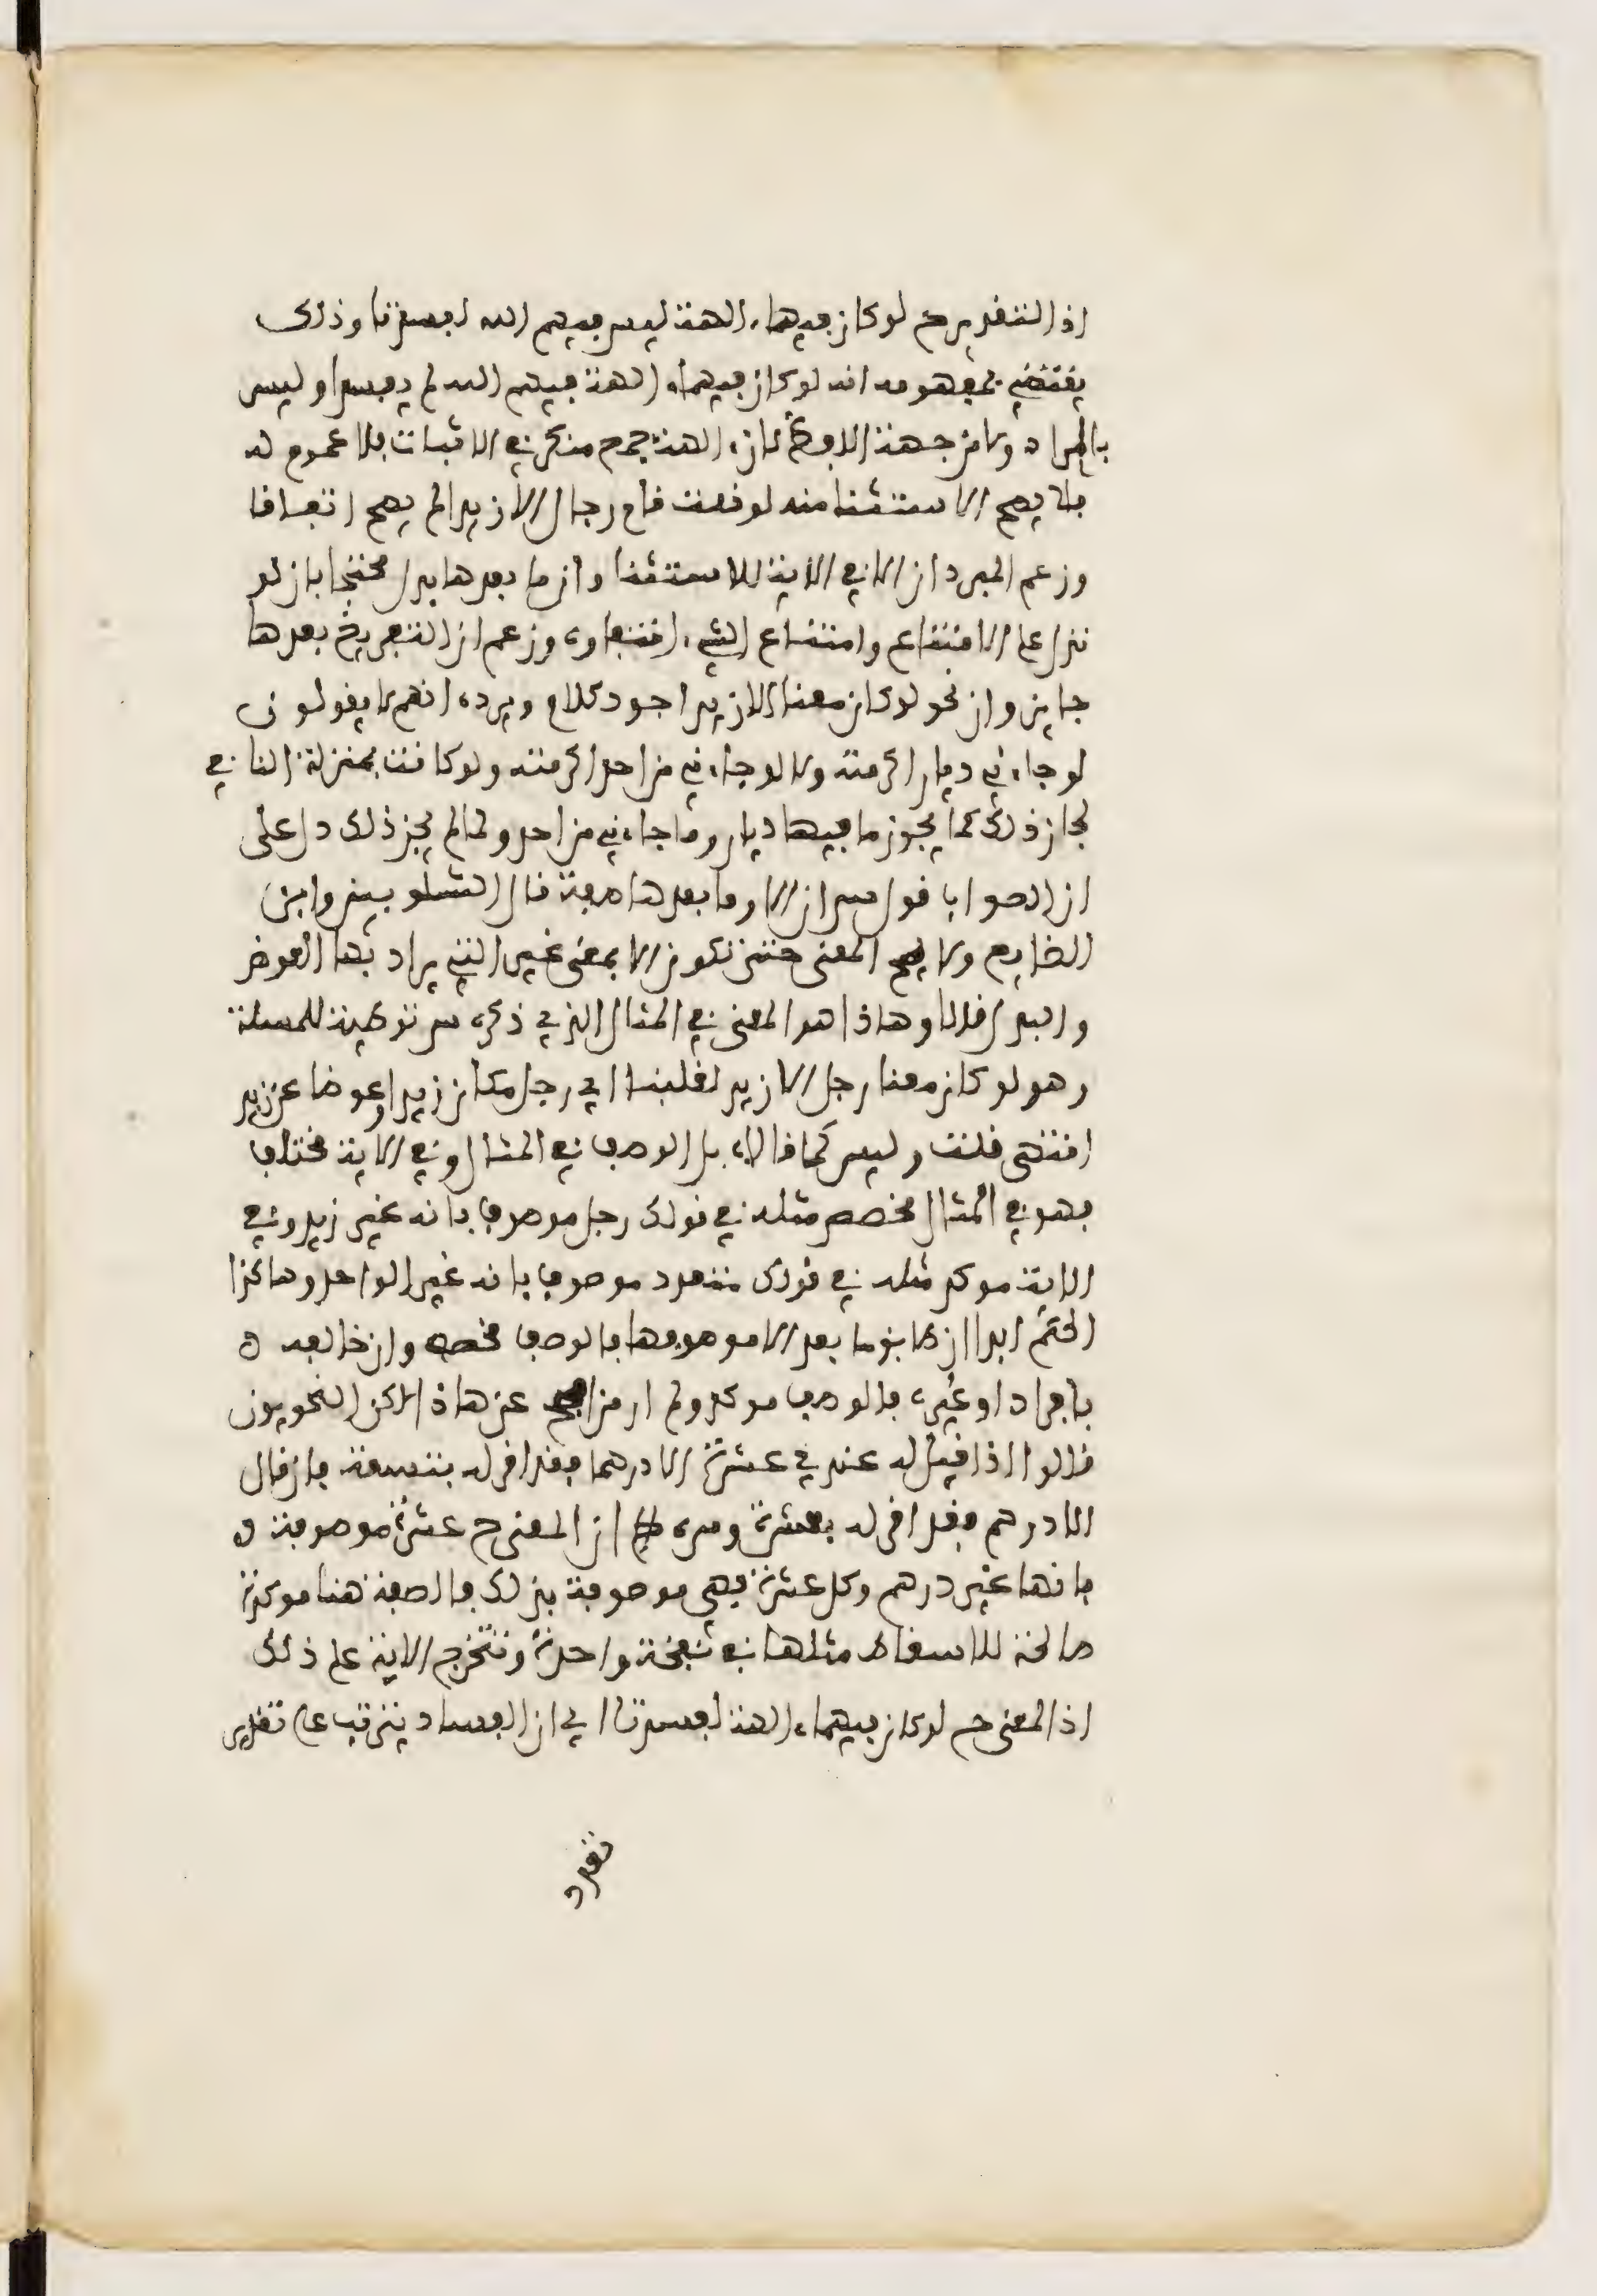 اذ التقدير ح لو كان فيهما ءالهة ليس فيهم الله لفسدتا وذلك
يقتضي بمفهومه انه لو كان فيهما ءالهة فيهم الله لم يفسدا وليس
بالمراد ولا من جهة اللفظ لان ءالهة جمع منكر في الاثبات فلا عموم له
فلا يصح الاستثنا منه لو قلت قام رجال الا زيدا لم يصح اتفاقا
وزعم المبرد ان الا في الاية للاستثنا وان ما بعدها بدل محتجا بان لو
تدل على الامتناع وامتناع الشيء انتفاوه وزعم ان التفريغ بعدها
جايز وان نحو لو كان معنا الا زيد اجود كلام ويرده انهم لا يقولون
لو جاءني ديار اكرمته ولا لو جاءني من احد اكرمته ولو كانت بمنزلة النافي
لجاز ذلك كما يجوز ما فيها ديار وما جاءني من احد ولما لم يجز ذلك دل على
ان الصواب قول س ان الا وما بعدها صفة قال الشلوبين وابن
الضايع ولا يصح المعنى حتى تكون الا بمعنى غير التي يراد بها العوض
والبدل قالا وهاذا هو المعنى في المثال الذي ذكره س توطية للمسلة
وهو لو كان معنا رجل الا زيد لغلبنا اي رجل مكان زيد او عوضا عن زيد
انتهى قلت وليس كما قالاه بل الوصف في المثال وفي الاية مختلف
فهو في المثال مخصص مثله في قولك رجل موصوف بانه غير زيد وفي
الاية موكد مثله في قولك متعدد موصوف بانه غير الواحد وهاكذا
الحكم ابدا ان طابق ما بعد الا موصوفها فالوصف مخصص وان خالفه
بافراد او غيره فالوصف موكد ولم ار من افصح عن هاذا لاكن النحويون
قالوا اذا قيل له عندي عشرة الا درهما فقد اقر له بتسعة فان قال
الا درهم فقد اقر له بعشرة وسره ان المعنى ح عشرة موصوفة
بانها غير درهم وكل عشرة فهي موصوفة بذلك فالصفة هنا موكدة
صالحة للاسقاط مثلها في نفخة واحدة وتتخرج الاية على ذلك
اذ المعنى ح لو كان فيهما ءالهة لفسدتا اي ان الفساد يترتب على تقدير
تعدد